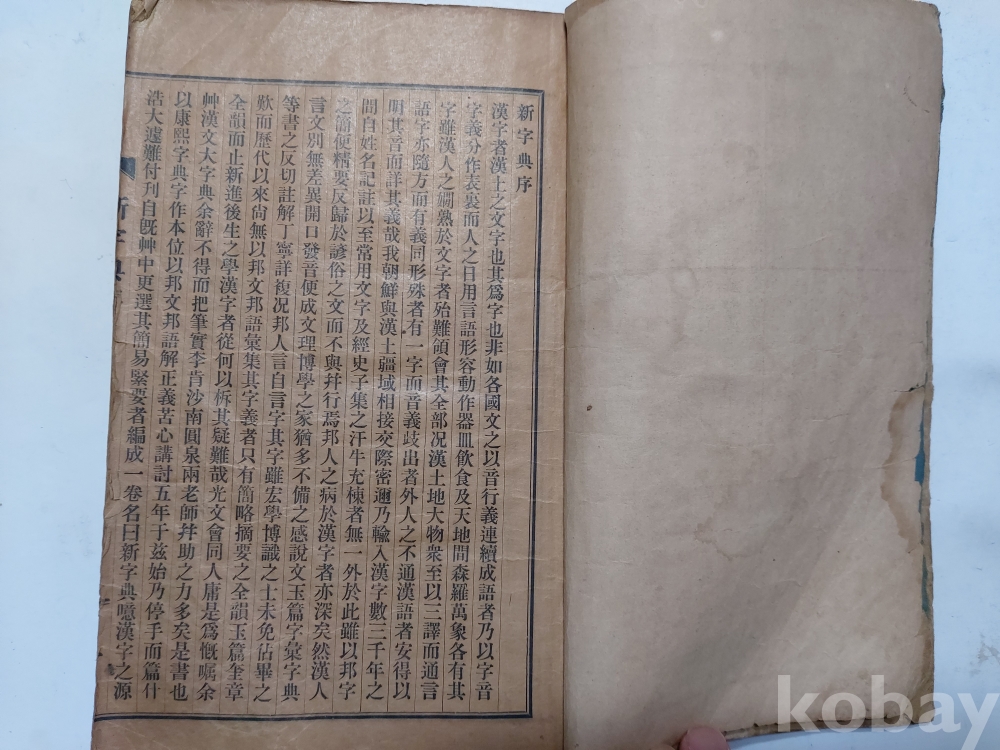 新字典序
漢字者漢土之文字也其爲字也非如各國文之以音行義連續成語者乃以字音
字義分作表裏而人之日用言語形容動作器皿飮食及天地間森羅萬象各有其
字雖漢人之嫺熟於文字者殆難領會其全部况漢土地大物衆至以三譯而通言
語字亦隨方而有義同形殊者有一字而音義歧出者外人之不通漢語者安得以
明其音而詳其義哉我朝鮮與漢土疆域相接交際密邇乃輸入漢字數三千年之
間自姓名記註以至常用文字及經史子集之汗牛充棟者無一外於此雖以邦字
之簡便精要反歸於諺俗之文而不與幷行焉邦人之病於漢字者亦深矣然漢人
言文別無差異開口發音便成文理博學之家猶多不備之感說文玉篇字彙字典
等書之反切註解丁寧詳複况邦人言自言字其字雖宏學博識之士未免佔畢之
歎而歷代以來尙無以邦文邦語彙集其字義者只有簡略摘要之全韻玉篇奎章
全韻而止新進後生之學漢字者從何以柝其疑難哉光文會同人庸是爲慨囑余
艸漢文大字典余辭不得而把筆實李肯沙南圓泉兩老師幷助之力多矣是書也
以康熙字典字作本位以邦文邦語解正義苦心講討五年于玆始乃停手而篇什
浩大遽難付刊自旣艸中更選其簡易緊要者編成一卷名曰新字典噫漢字之源
新字典
kobay